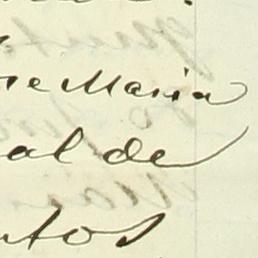 se Maria
al de
ntos